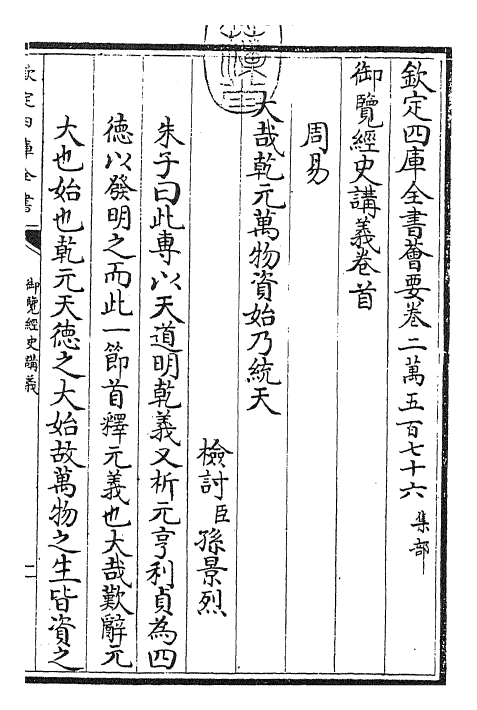 欽定四庫全書薈要卷二萬五百七十六 集部
御覽經史講義卷首
周易
大哉乾元萬物資始乃統天
檢討臣孫景烈
朱子曰此專以天道明乾義又析元亨利貞為四
德以發明之而此一節首釋元義也大哉歎辭元
大也始也乾元天德之大始故萬物之生皆資之
欽定四庫全書
御覽經史講義